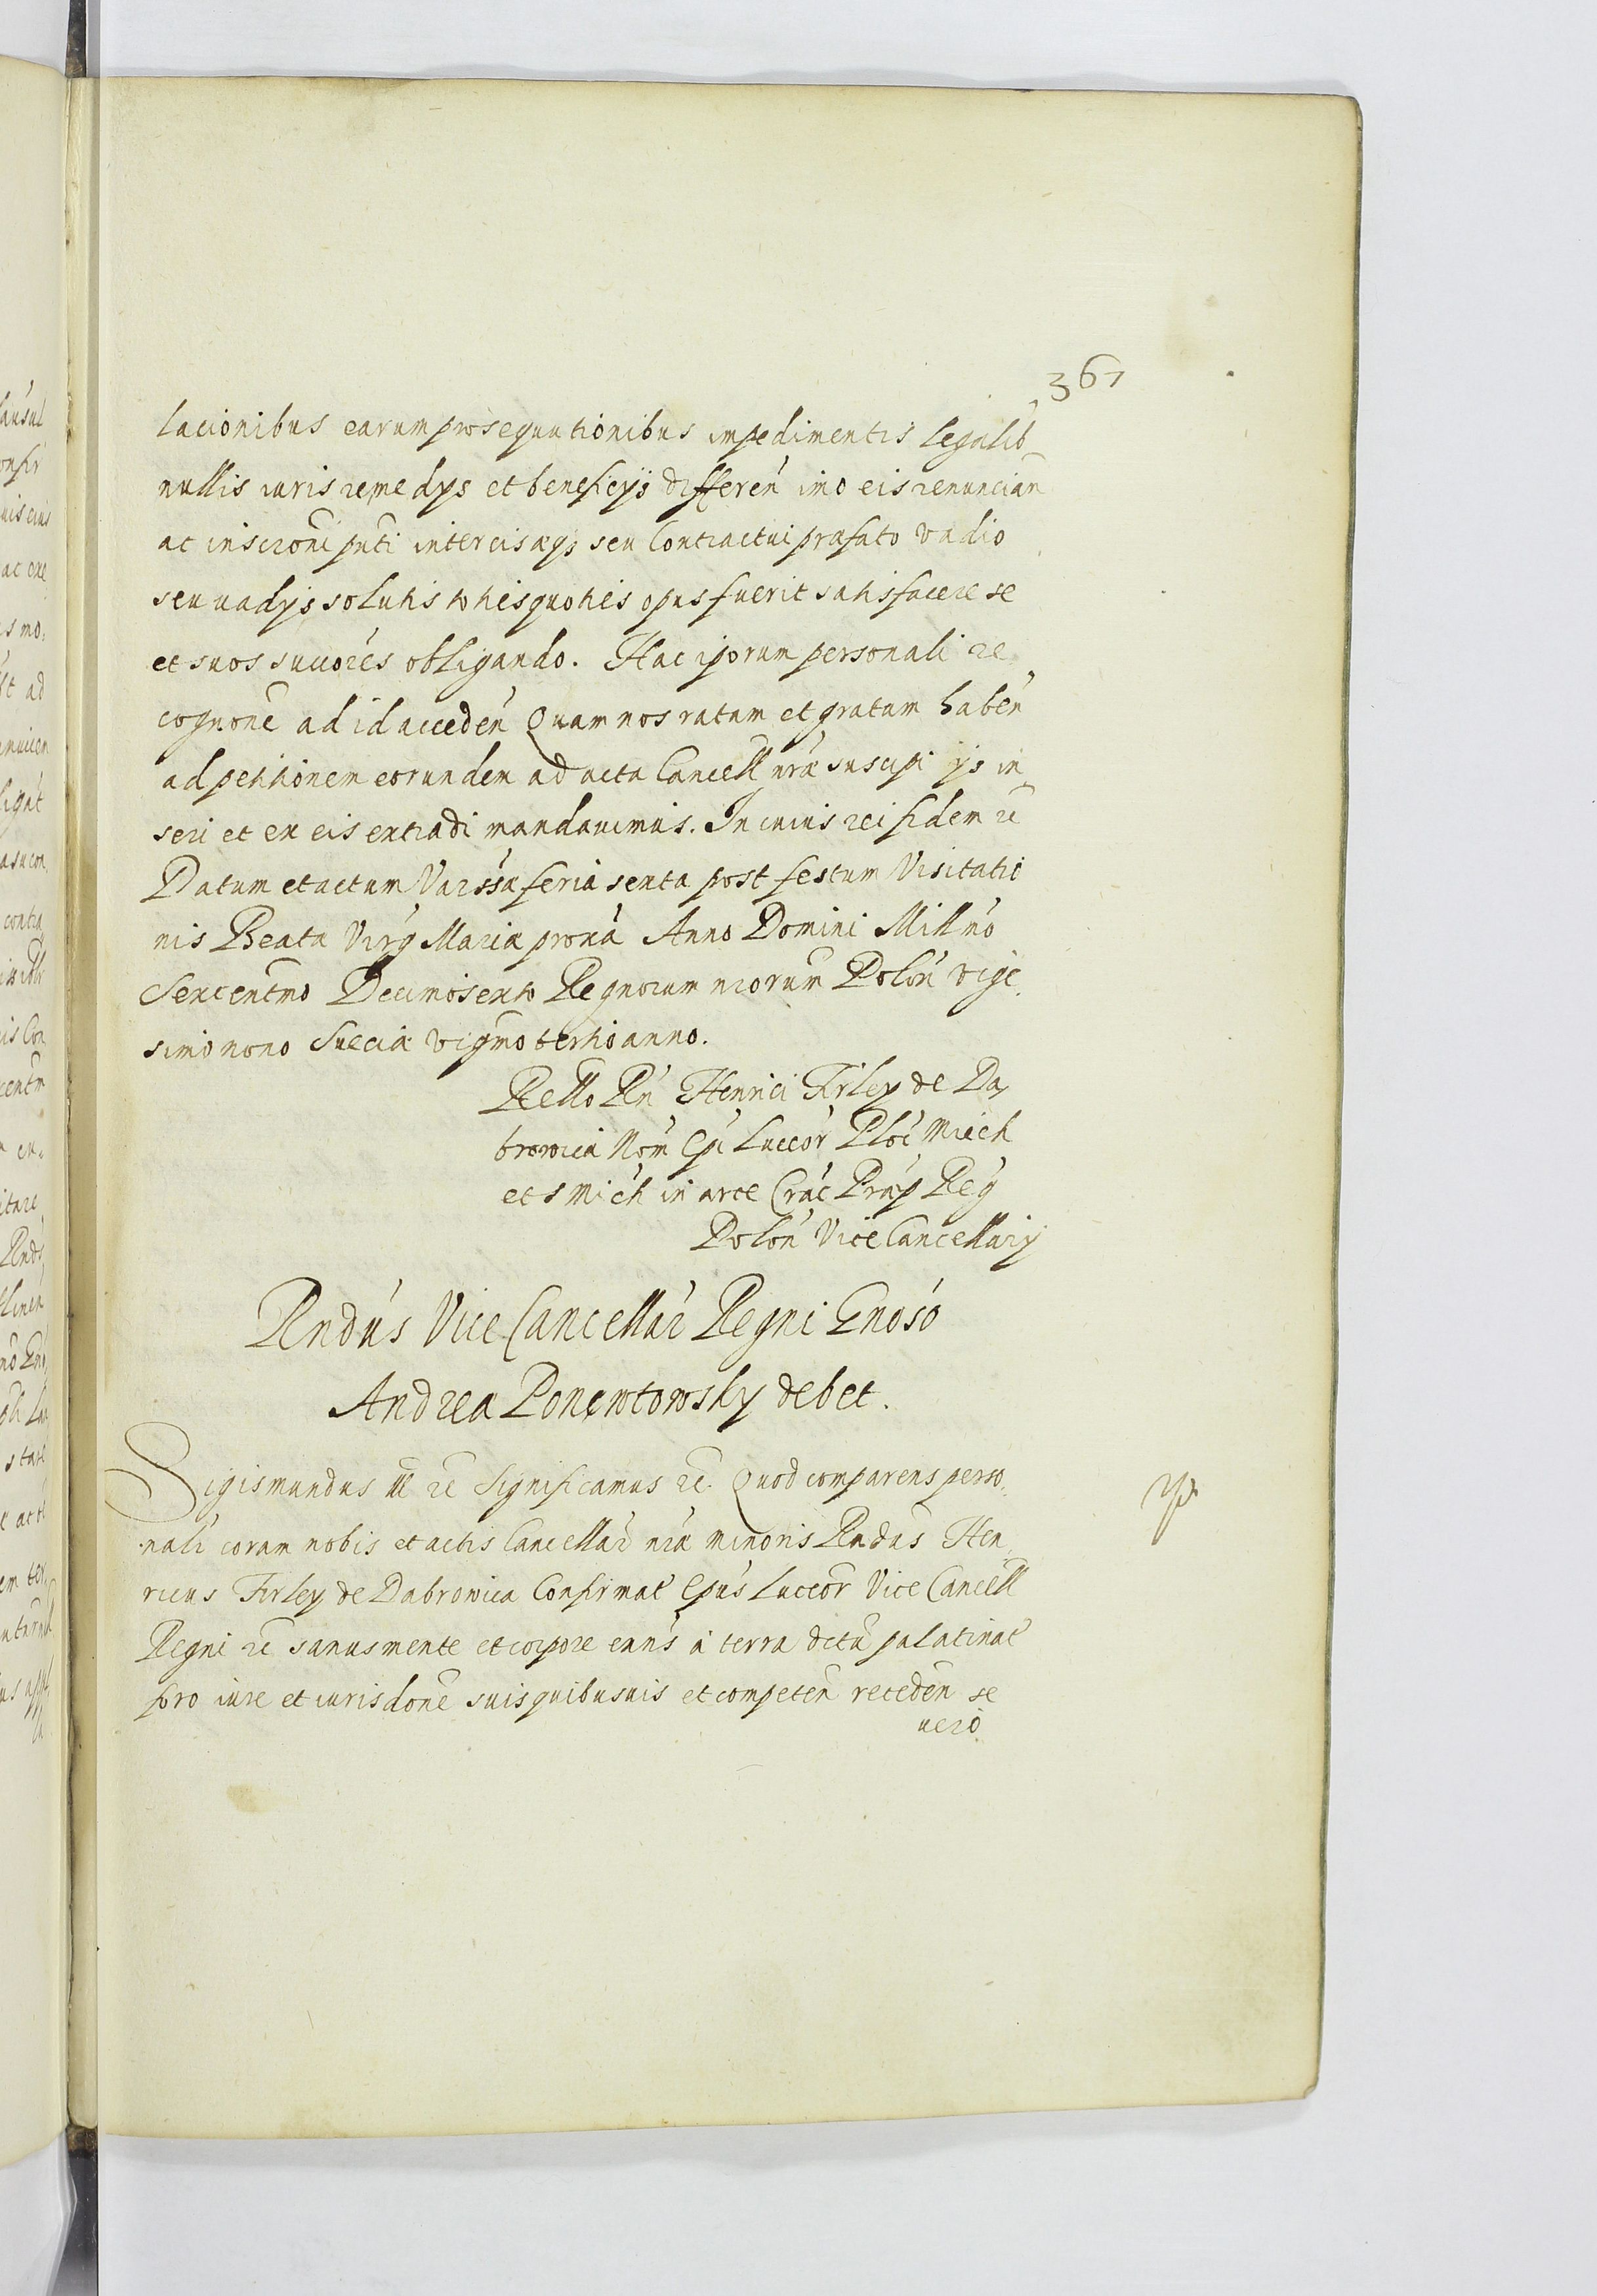 367
lacionibus earum prosequutionibus impedimentis legalib
nullis iuris remedys et beneficijs differen imo eis renuncian
ac inscrõni pnti intercisæqз seu Contractui præfato vadio
seu vadijs solutis toties quoties opus fuerit satisfacere se
et suos succores obligando. Hac iporum personali re
cognone ad id acceden Quam nos ratam et gratam haben
ad petitionem eorundem ad acta Cancell nræ suscipi ijs in
seri et ex eis extradi mandavimus. In cuius rei fidem rc
Datum et actum Varssæ feria sexta post festum Visitatio
nis Beatæ Virg Mariæ proxa Anno Domini Millno
Sexcentmo Decimosexto Regnorum nrorum Polon vige
simo nono Sueciæ vigmo tertio anno.
Rello Rn Henrici Firley de Da
browica Nom Epi Luceor Ploc Miech
et S Mich in arce Crac Præp Reg
Polon Vice Cancellarij
Rndus Vice Cancellar Regni Gnoso
Andreæ Ponentowsky debet.
Sigismundus III rc Significamus rc. Quod comparens perso
nalr coram nobis et actis Cancellar nræ minoris Rndus Hen
ricus Firley de Dabrowica Confirmat Epus Luceor Vice Cancell
Regni rc sanus mente et corpore exns à terra dctu palatinat
foro iure et iurisdone suis quibusuis et competen receden se
uero